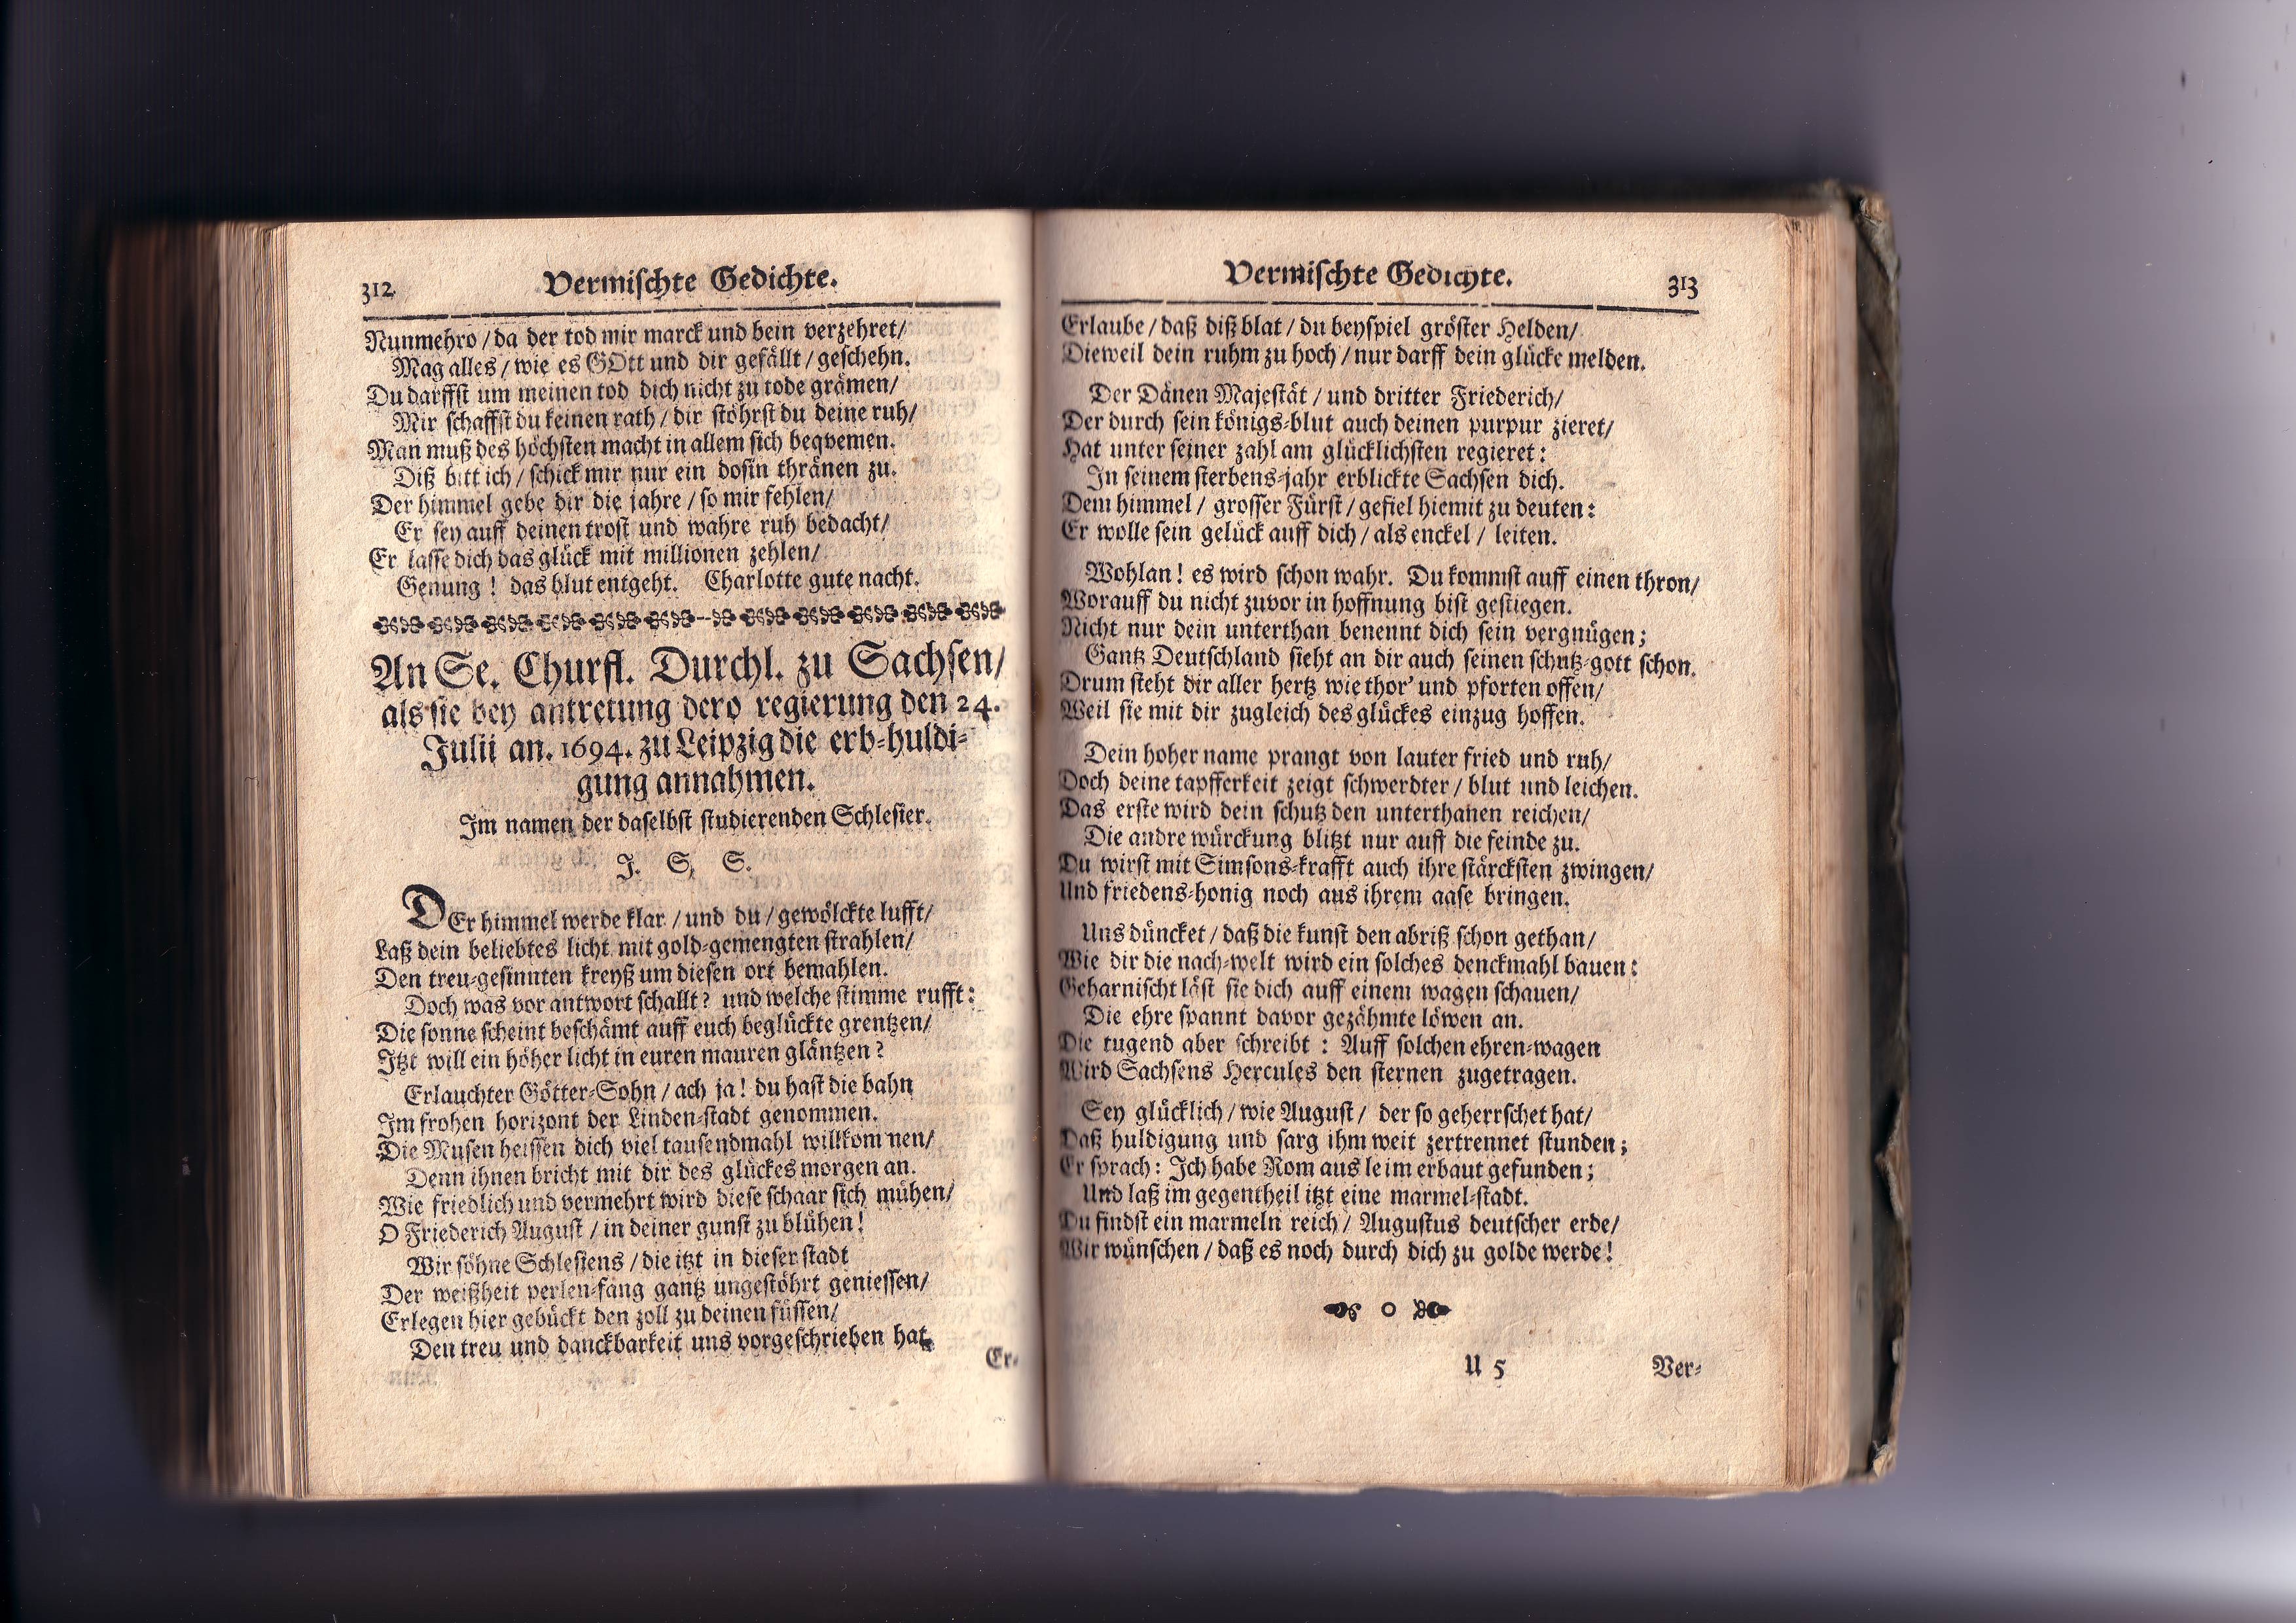 312 Vermischte Gedichte.
Nunmehro / da der tod mir marck und bein verzehret /
Mag alles / wie es GOtt und dir gefällt / geschehn.
Du darffst um meinen tod dich nicht zu tode grämen /
Mir schaffst du keinen rath / dir stöhrst du deine ruh /
Man muß des höchsten macht in allem sich beqvemen.
Diß bitt ich / schick mir nur ein dosin thränen zu.
Der himmel gebe dir die jahre / so mir fehlen /
Er sey auff deinen trost und wahre ruh bedacht /
Er lasse dich das glück mit millionen zehlen /
Genung ! das blut entgeht. Charlotte gute nacht.
An Se. Churfl. Durchl. zu Sachsen /
als sie bey antretung dero regierung den 24.
Julii an. 1694. zu Leipzig die erb-huldi-
gung annahmen.
Im namen der daselbst studierenden Schlesier.
J. S. S.
DEr himmel werde klar / und du / gewölckte lufft /
Laß dein beliebtes licht mit gold-gemengten strahlen /
Den treu-gesinnten kreyß um diesen ort bemahlen.
Doch was vor antwort schallt ? und welche stimme rufft :
Die sonne scheint beschämt auff euch beglückte grentzen /
Itzt will ein höher licht in euren mauren gläntzen ?
Erlauchter Götter-Sohn / ach ja ! du hast die bahn
Im frohen horizont der Linden-stadt genommen.
Die Musen heissen dich viel tausendmahl willkommen /
Denn ihnen bricht mit dir des glückes morgen an.
Wie friedlich und vermehrt wird diese schaar sich mühen /
O Friederich August / in deiner gunst zu blühen !
Wir söhne Schlesiens / die itzt in dieser stadt
Der weißheit perlen-fang gantz ungestöhrt geniessen /
Erlegen hier gebückt den zoll zu deinen füssen /
Den treu und danckbarkeit uns vorgeschrieben hat.
Er-
Vermischte Gedichte. 313
Erlaube / daß diß blat / du beyspiel gröster Helden /
Dieweil dein ruhm zu hoch / nur darff dein glücke melden.
Der Dänen Majestät / und dritter Friederich /
Der durch sein königs-blut auch deinen purpur zieret /
Hat unter seiner zahl am glücklichsten regieret :
In seinem sterbens-jahr erblickte Sachsen dich.
Dem himmel / grosser Fürst / gefiel hiemit zu deuten :
Er wolle sein gelück auff dich / als enckel / leiten.
Wohlan ! es wird schon wahr. Du kommst auff einen thron /
Worauff du nicht zuvor in hoffnung bist gestiegen.
Nicht nur dein unterthan benennt dich sein vergnügen ;
Gantz Deutschland sieht an dir auch seinen schutz-gott schon.
Drum steht dir aller hertz wie thor' und pforten offen /
Weil sie mit dir zugleich des glückes einzug hoffen.
Dein hoher name prangt von lauter fried und ruh /
Doch deine tapfferkeit zeigt schwerdter / blut und leichen.
Das erste wird dein schutz den unterthanen reichen /
Die andre würckung blitzt nur auff die feinde zu.
Du wirst mit Simsons-krafft auch ihre stärcksten zwingen /
Und friedens-honig noch aus ihrem aase bringen.
Uns düncket / daß die kunst den abriß schon gethan /
Wie dir die nach-welt wird ein solches denckmahl bauen :
Geharnischt läst sie dich auff einem wagen schauen /
Die ehre spannt davor gezähmte löwen an.
Die tugend aber schreibt : Auff solchen ehren-wagen
Wird Sachsens Hercules den sternen zugetragen.
Sey glücklich / wie August / der so geherrschet hat /
Daß huldigung und sarg ihm weit zertrennet stunden ;
Er sprach : Ich habe Rom aus leim erbaut gefunden ;
Und laß im gegentheil itzt eine marmel-stadt.
Du findst ein marmeln reich / Augustus deutscher erde /
Wir wünschen / daß es noch durch dich zu golde werde !
U 5 Ver-